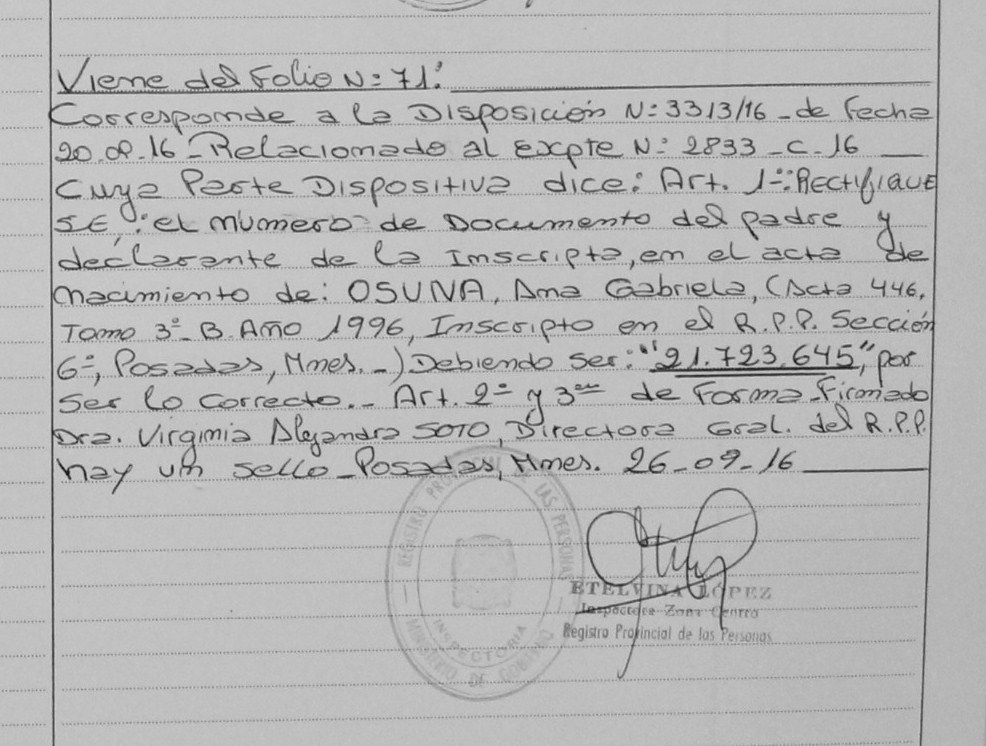 Viene del Folio N: 71:
Corresponde a la Disposición N: 3313/16 - de Fecha
20.09.16 - Relacionado al expte N: 2833 - C - 16
Cuya Parte Dispositiva dice: Art. 1º: Rectifique
se, el numero de Documento del padre y
declarante de la Inscripta, en el acta de
nacimiento de: OSUNA, Ana Gabriela, (Acta 446,
Tomo 3º - B. Año 1996, Inscripto en el R.P.P. Sección
6º, Posadas, Mnes. -) Debiendo ser: "21.723.645", por
ser lo correcto. - Art. 2º y 3º de Forma - Firmado
Dra. Virginia Alejandra SOTO, Directora Gral. del R.P.P.
hay un sello - Posadas, Mnes. 26-09-16
REGISTRO PROVINCIAL DE LAS PERSONAS
INSPECTORIA
MINISTERIO DE GOBIERNO
ETELVINA LÓPEZ
Inspectora Zona Centro
Registro Provincial de las Personas